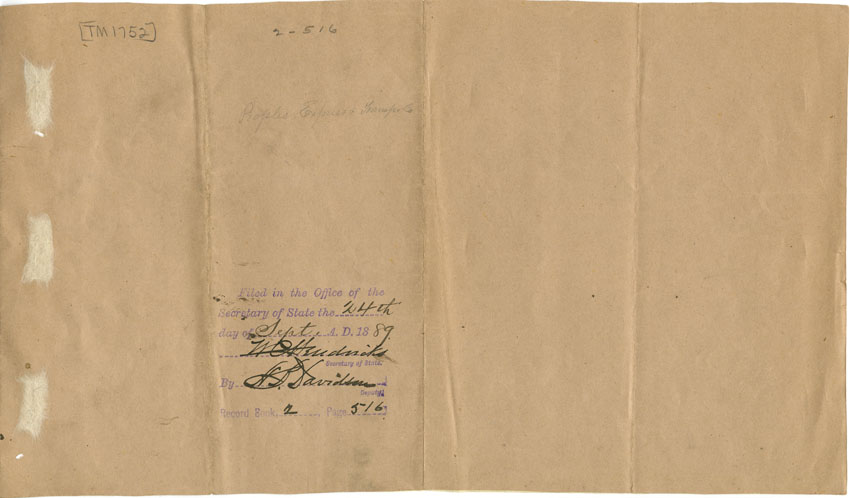 [TM1752]
2-516
Peoples Express
Filed in the Office of the
Secretary of State the 24th
day of Sept. A. D. 1889
W C Hendricks
Secretary of State.
By Davidson
Deputy
Record Book, 2 Page 516